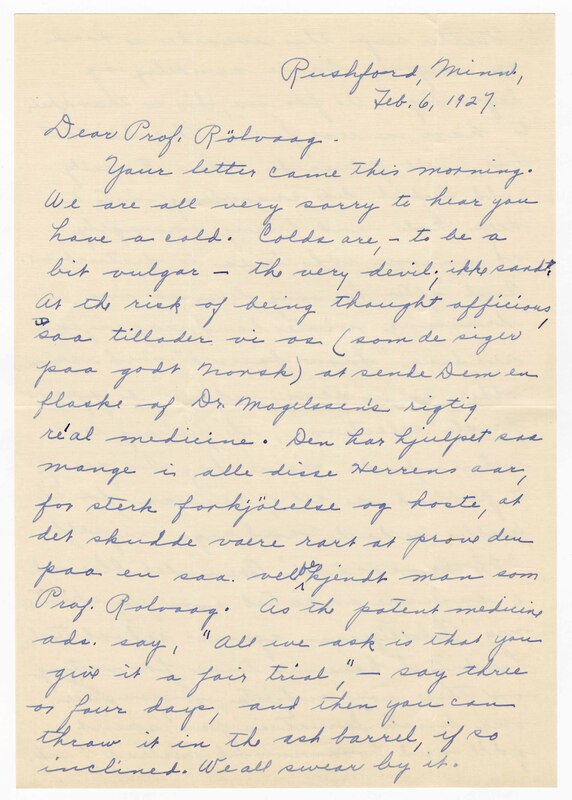 Rushford, Minn.,
Feb. 6, 1927.
Dear Prof. Rölvaag.
Your letter came this morning.
We are all very sorry to hear you
have a cold. Colds are, – to be a
bit vulgar – the very devil; ikke sandt.
At the risk of being thought officious,
saa tillader vi os (som de siger
paa godt Norsk) at sende Dem en
flaske af Dr. Magelssen's rigtig
réal medicine. Den har hjulpet saa
mange i alle disse Herrens aar,
for sterk forkjölelse og hoste, at
det skudde være rart at prove den
paa en saa velbekjendt man som
Prof. Rolvaag. As the patent medicine
ads. say, "All we ask is that you
give it a fair trial," – say three
or four days, and then you can
throw it in the ash barrel, if so
inclined. We all swear by it.